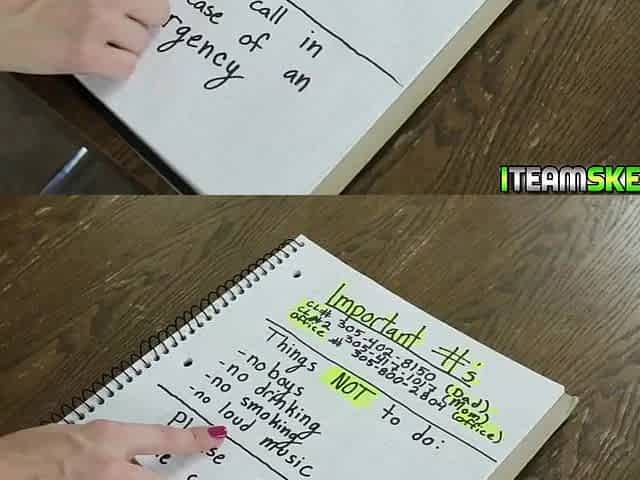 call in
case of an
rgency
ITEAMSKE
Important #'s
CL# 305-402-8150 (Dad)
CL#2 305-413-1019 (Mom)
OFFice # 305-800-2804 (office)
Things NOT to do:
-no boys
-no drinking
-no smoking
-no loud music
Please